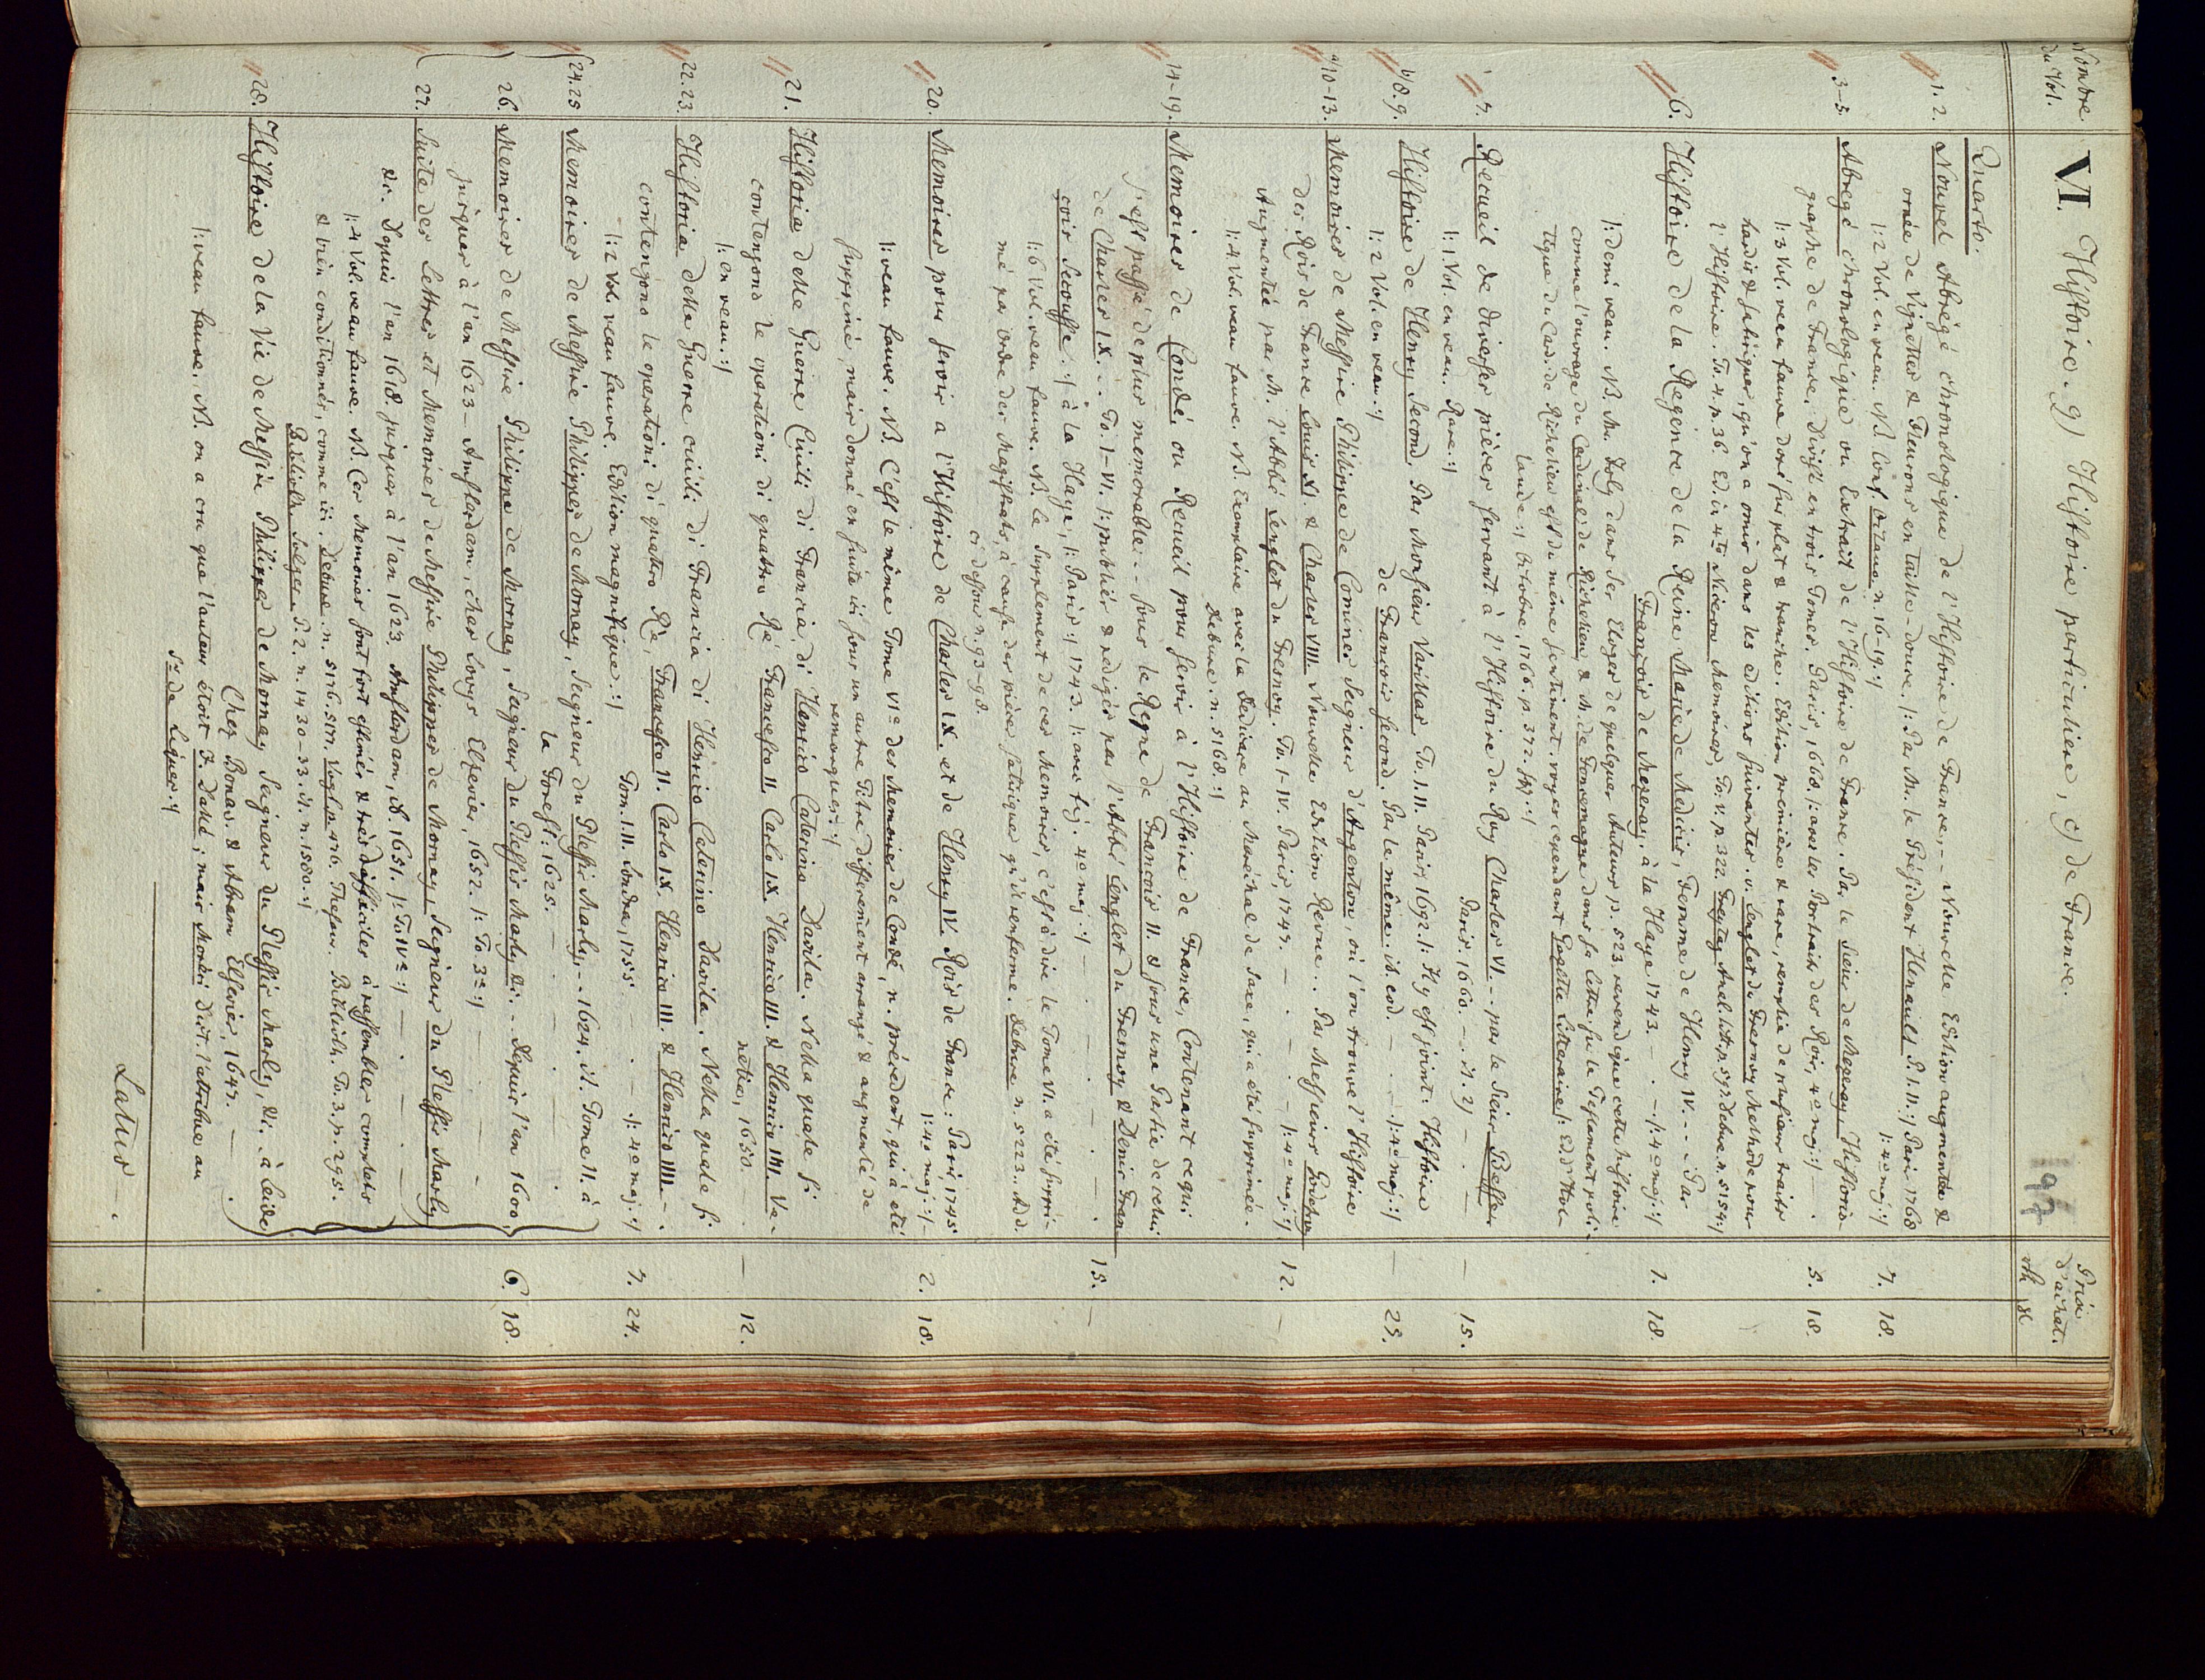 Nombre du Vol.
VI. Histoire. g) Histoire particuliere, c) de France.
197
Prix d'achat.
rth gl
Quarto.
1. 2. Nouvel Abrégé chronologique de l'Histoire de France, -- Nouvelle Edition augmentée &
ornée de Vignettes & Fleurons en taille-douce. /: Par M. le Président Henault P. I. II. :/ Paris 1768
/: 2 Vol. en veau. NB. conf. Octavo. n. 16-19. :/ /: 4º maj :/ 7. 18.
3-5. Abregé chronologique ou Extrait de l'Histoire de France. Par le Sieur de Mezeray, Historio-
graphe de France. Divisé en trois Tomes. Paris, 1668. /: avec les Portraits des Rois, 4º maj :/ — . 5. 18.
/: 3 Vol. veau fauve doré sur plat & tranche. Edition premiere & rare, remplie de plusieurs traits
hardis & satiriques, qu'on a omis dans les editions suivantes. v. Lenglet du Fresnoy Methode pour
l'Histoire. To. 4. p. 36. Ed. in 4to Niceron Memoires, To. V. p. 322. Freytag Anal. litt. p. 597. Debure n. 5154 :/
6. Histoire de la Regence de la Reine Marie de Medicis, Femme de Henry IV. -- Par
François de Mezeray, à la Haye 1743. — . — /: 4º maj :/ 1. 18.
/: demi veau. NB. Mr. Joly dans ses Eloges de quelques Auteurs p. 523 revendique cette histoire
comme l'ouvrage du Cardinal de Richelieu, & M. de Foncemagne dans sa lettre sur le Testament poli-
tique du Card. de Richelieu est du même sentiment. voyez cependant Gazette Litteraire /: Ed. d'Hol-
lande :/ Octobre, 1766. p. 372. sqq :/
7. Recueil de diverses pièces servant à l'Histoire du Roy Charles VI -- par le Sieur Besse.
/: 1 Vol. en veau. Rare. :/ Paris. 1660. — . — — 15.
b/8. 9. Histoire de Henry Second. Par Monsieur Varillas. To. I. II. Paris, 1692. /: Il y est joint: Histoire
de François second. Par le même: ib. eod. — . — /: 4º maj :/ — 25.
/: 2 Vol. en veau :/
a/10-13. Memoires de Messire Philippe de Comines Seigneur d'Argenton, où l'on trouve l'Histoire
des Rois de France Louis XI. & Charles VIII. Nouvelle Edition Revue .. Par Messieurs Godefroy
Augmentée par M. l'Abbé Lenglet du Fresnoy. To. I-IV. Paris, 1747. — . — /: 4º maj :/ 12. —
/: 4 Vol. veau fauve. NB. Exemplaire avec la dedicace au Maréchal de Saxe, qui a été supprimée.
Debure. n. 5168. :/
14-19. Memoires de Condé, ou Recueil pour servir à l'Histoire de France, Contenant ce qui
s'est passé de plus memorable -- sous le Regne de François II. & sous une Partie de celui
de Charles IX. -- To. I-VI. /: publiés & redigés par l'Abbé Lenglet du Fresnoy & Denis Fran-
çois Secousse. :/ à la Haye, /: Paris :/ 1743. /: avec fig. 4º maj :/ — . — . 15. —
/: 6 Vol. veau fauve. NB. le Supplement de ces Memoires, c'est à dire le Tome VI. a été suppri-
mé par ordre des Magistrats, à cause des pièces satiriques qu'il renferme. Debure n. 5223. Add.
ci dessous n. 93-98.
20. Memoires pour servir a l'Histoire de Charles IX. et de Henry IV. Rois de France: Paris, 1745.
/: 4º maj :/ — 2. 18.
/: veau fauve. NB. C'est le même Tome VIe des Memoires de Condé, n. précedent, qui a eté
supprimé, mais donné en suite ici sous un autre Titre, differement arrangé & augmenté de
remarques :/
21. Historia delle Guerre Civili di Francia, di Henrico Caterino Davila. Nella quale si
contengono le operationi di quattro Rè Francesco II. Carlo IX. Henrico III. & Henrico IIII. Ve-
netia, 1650. — . — 12.
/: en veau. :/
22. 23. Historia delle Guerre civili di Francia di Henrico Caterino Davila. Nella quale si
contengono le operationi di quattro Rè, Francesco II. Carlo IX. Henrico III. & Henrico IIII. — .
Tom. I. II. Londra, 1755. — . — /: 4º maj :/ 7. 24.
/: 2 Vol. veau fauve. Edition magnifique. :/
24. 25. Memoires de Messire Philippes de Mornay, Seigneur du Plessis Marly, -- 1624. it. Tome II. à
la Forest: 1625. — . — .
26. Memoires de Messire Philippe de Mornay, Seigneur du Plessis Marly &c. -- depuis l'an 1600.
jusques à l'an 1623 — Amsterdam, chez Lovys Elzevier, 1652. /: To. 3e :/ — . —
6. 18.
27. Suite des Lettres et Memoires de Messire Philippes de Mornay, Seigneur du Plessis Marly
&c. Depuis l'an 1618. jusques à l'an 1623. Amsterdam, id. 1651. /: To. IVe :/ — . —
/: 4 Vol. veau fauve. NB. Ces Memoires sont fort estimés & très difficiles à rassembler complets
& bien conditionnés, comme ici. Debure. n. 5176. 5177. Vogt p. 476. Thesaur. Biblioth. To. 3. p. 295.
Biblioth. Solger. P. 2. n. 1430-33. it. n. 1580. :/
28. Histoire de la Vie de Messire Philippe de Mornay Seigneur du Plessis Marly, &c. à Leide
Chez Bonav. & Abram Elsevier, 1647. — .
/: veau fauve. NB. on a cru que l'auteur étoit J. Daillé; mais Moréri Dict. l'attribue au
Sr. de Liques. :/
Latus — .